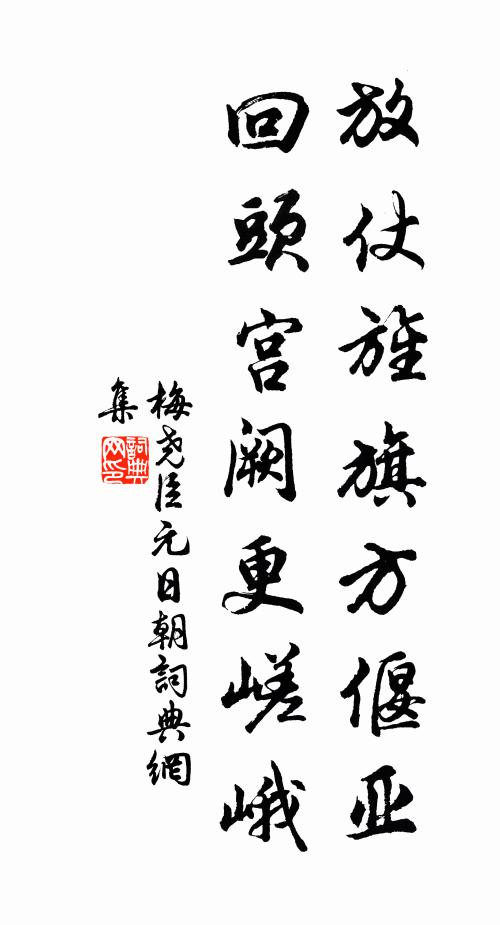 放仗旌旗方偃亚
回頭宫阙更嵯峨
梅尧臣元日朝詞典網
集
詞典网印